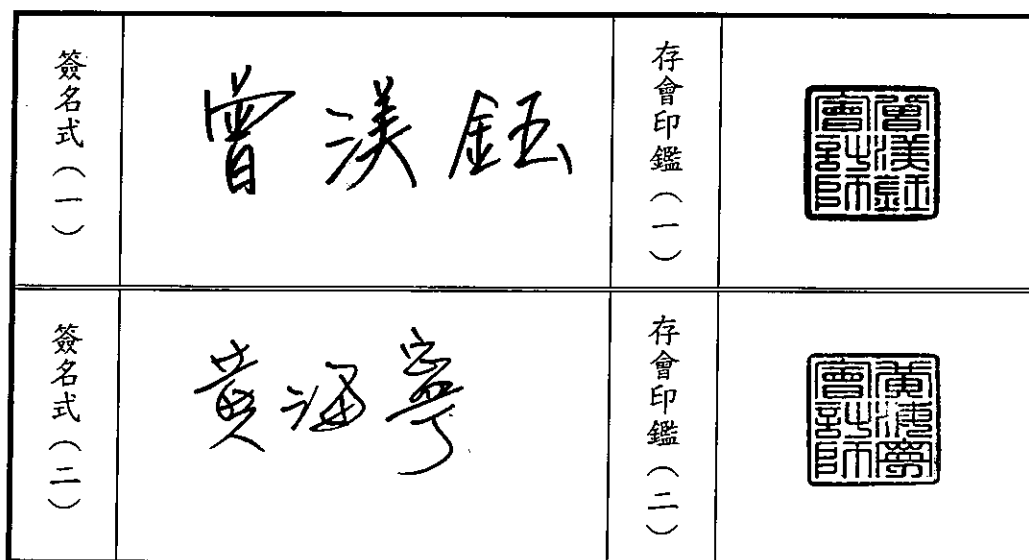 簽名式（一）
曾渼鈺
存會印鑑（一）
曾渼鈺會計師
簽名式（二）
黃海寧
存會印鑑（二）
黃海寧會計師